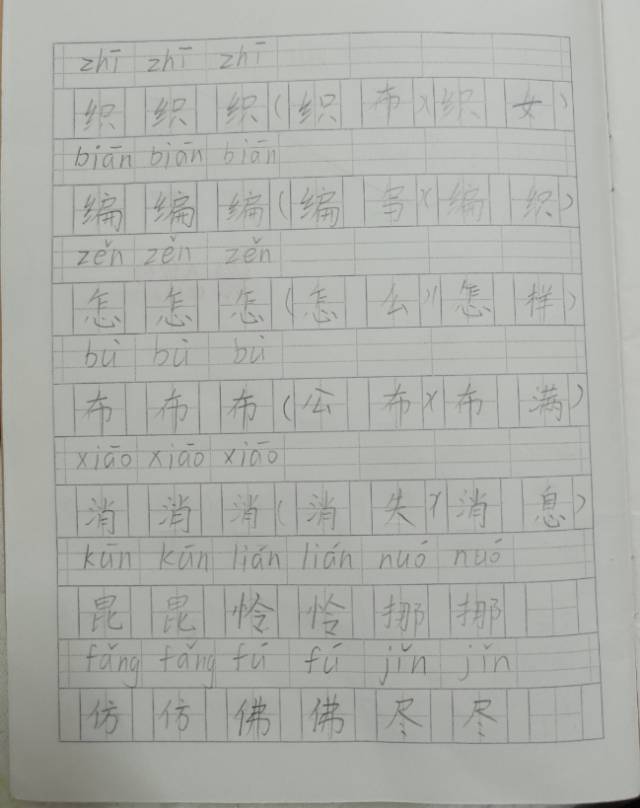 zhī zhī zhī
织 织 织 (织 布)(织 女)
biān biān biān
编 编 编 (编 写)(编 织)
zěn zěn zěn
怎 怎 怎 (怎 么)(怎 样)
bù bù bù
布 布 布 (公 布)(布 满)
xiāo xiāo xiāo
消 消 消 (消 失)(消 息)
kūn kūn lián lián nuó nuó
昆 昆 怜 怜 挪 挪
fǎng fǎng fú fú jǐn jǐn
仿 仿 佛 佛 尽 尽